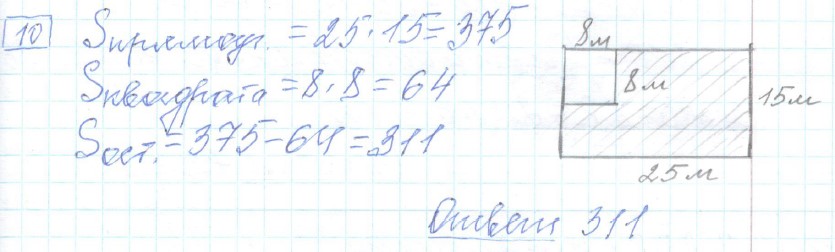 10
Sпрямоуг. = 25·15=375
Sквадрата = 8·8=64
Sост.=375-64=311
8м
8м
15м
25м
Ответ 311